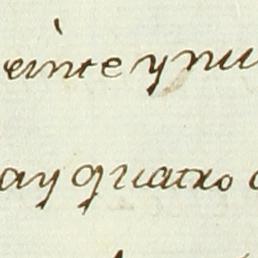 einte y nu
ay quatro